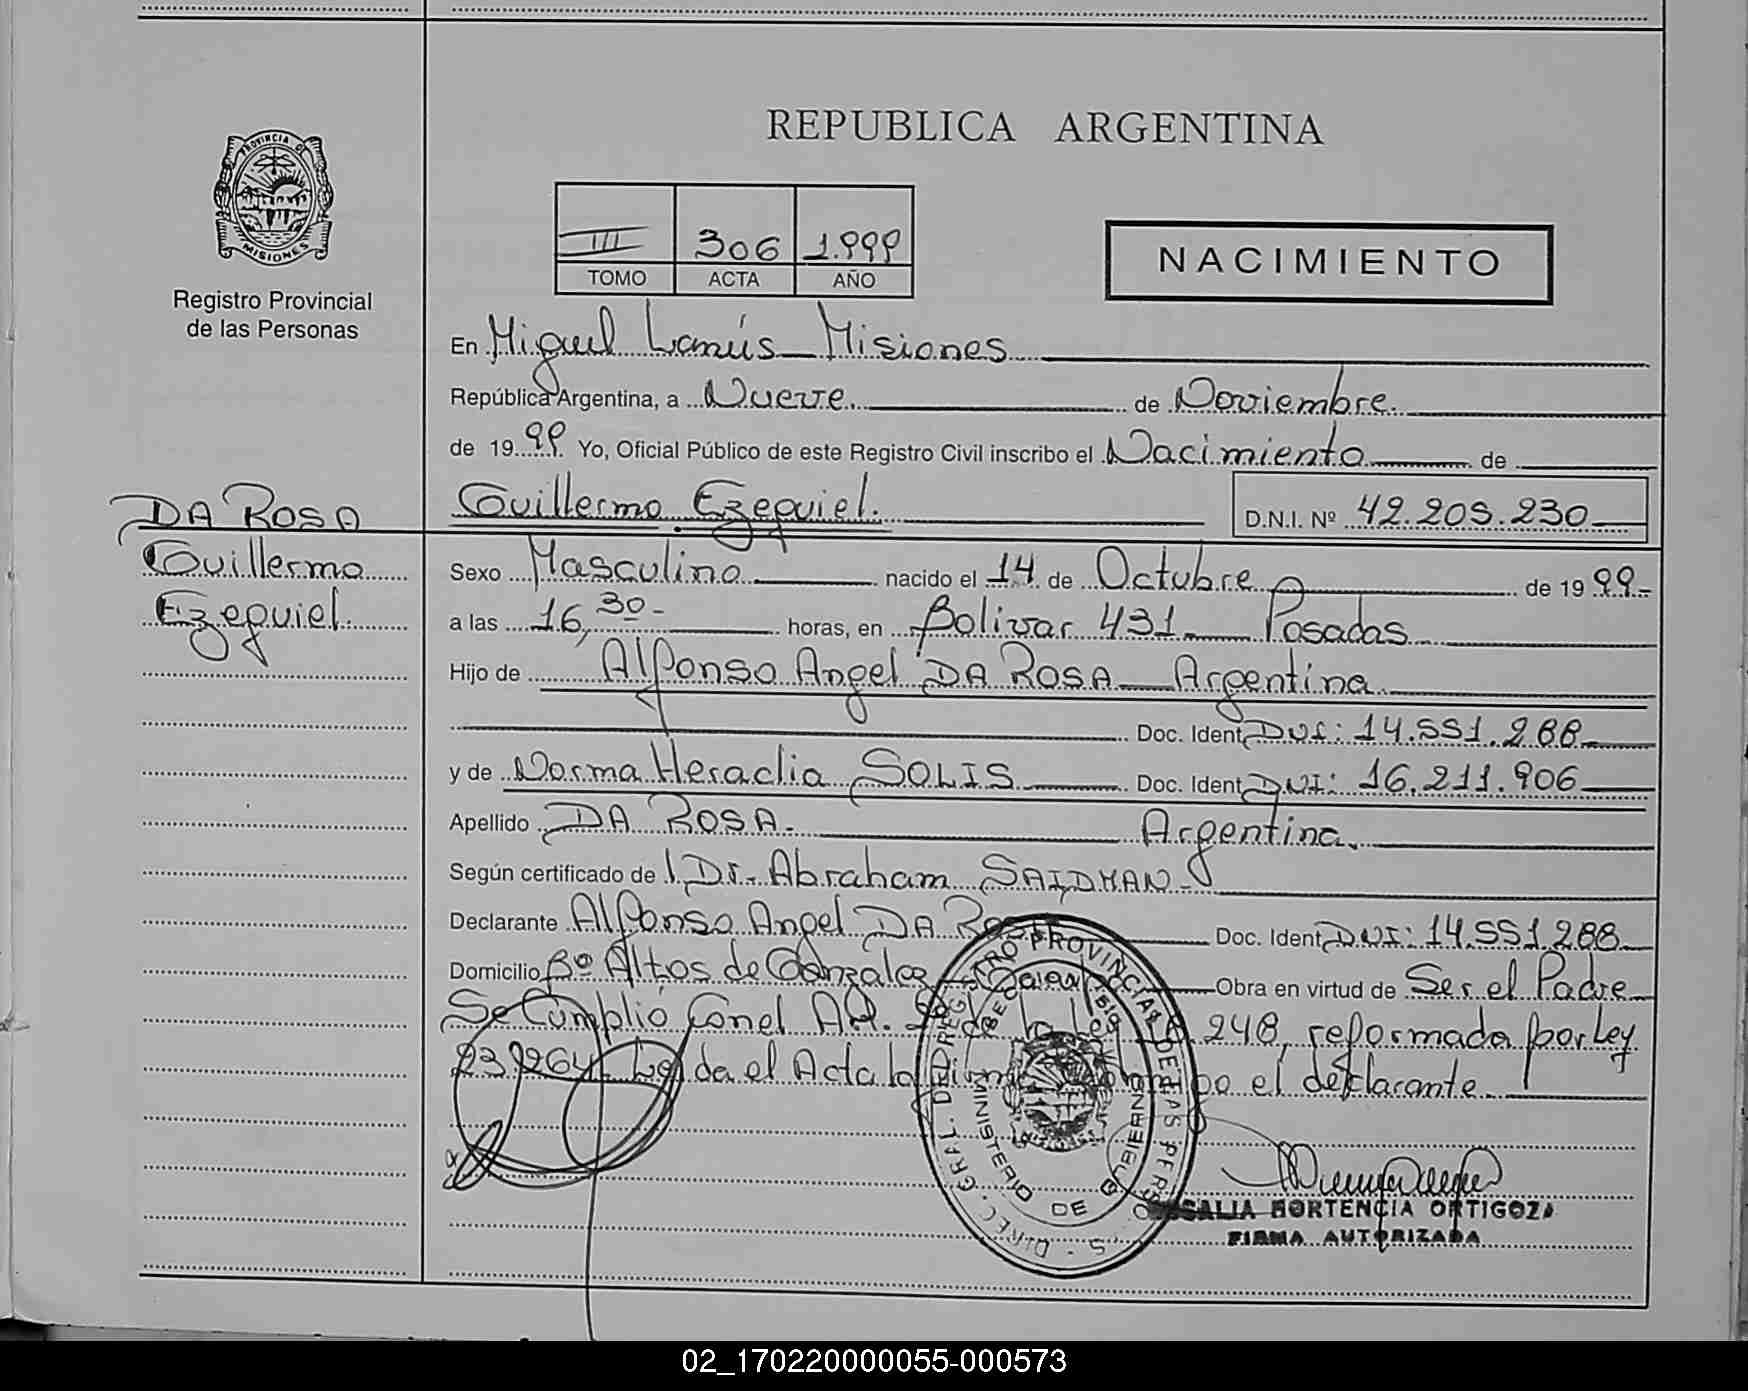 REPUBLICA ARGENTINA
PROVINCIA DE MISIONES
Registro Provincial
de las Personas
III 306 1.999
TOMO ACTA AÑO
NACIMIENTO
En Miguel Lanús Misiones
República Argentina, a Nueve de Noviembre
de 1999 Yo, Oficial Público de este Registro Civil inscribo el Nacimiento de
DA ROSA
Guillermo
Ezequiel.
Guillermo Ezequiel. D.N.I. Nº 42.205.230
Sexo Masculino nacido el 14 de Octubre de 1999-
a las 16,30- horas, en Bolivar 431 Posadas
Hijo de Alfonso Angel DA ROSA Argentina
Doc. Ident. DNI: 14.551.288
y de Norma Heraclia SOLIS Doc. Ident. DNI: 16.211.906
Apellido DA ROSA. Argentina.
Según certificado de Dr. Abraham SAIDMAN-
Declarante Alfonso Angel DA ROSA Doc. Ident. DNI: 14.551.288
Domicilio Bº Altos de Gonzalez Obra en virtud de Ser el Padre
Se Cumplió Con el Art. de la Ley 248, reformada por Ley
23.264. Leida el Acta la el declarante.
DIREC. GRAL. DEL REGISTRO PROVINCIAL DE LAS PERSONAS
MINISTERIO DE GOBIERNO
ROSALIA HORTENCIA ORTIGOZA
FIRMA AUTORIZADA
02_170220000055-000573